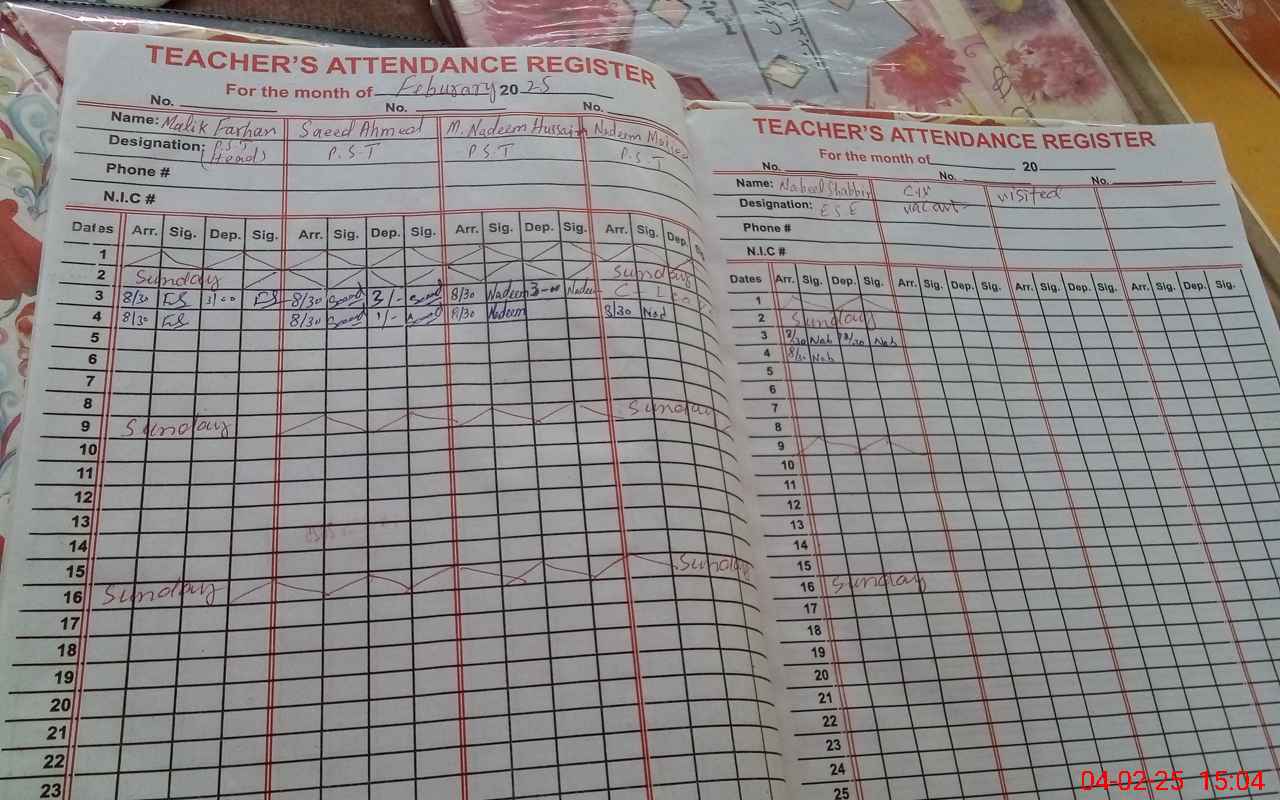 TEACHER'S ATTENDANCE REGISTER
For the month of Feburary 2025
No. No. No.
Name: Malik Farhan Saeed Ahmed M. Nadeem Hussain Nadeem
Designation: P.S.T (Head) P.S.T P.S.T P.S.T
Phone #
N.I.C #
Dates Arr. Sig. Dep. Sig. Arr. Sig. Dep. Sig. Arr. Sig. Dep. Sig. Arr. Sig. Dep.
1
2 Sunday Sunday
3 8/30 3/00 8/30 3/- 8/30 Nadeem 3-00 Nadeem C-Leave
4 8/30 8/30 1/- 8/30 Nadeem 8/30 Nad
5
6
7
8
9 Sunday Sunday
10
11
12
13
14
15
16 Sunday Sunday
17
18
19
20
21
22
23
TEACHER'S ATTENDANCE REGISTER
For the month of 20
No. No. No.
Name: Nabeel Shabbir visited
Designation: ESE vacant
Phone #
N.I.C #
Dates Arr. Sig. Dep. Sig. Arr. Sig. Dep. Sig. Arr. Sig. Dep. Sig. Arr. Sig. Dep. Sig.
1
2 Sunday
3 8/30 Nab Nab
4 8/30 Nab
5
6
7
8
9
10
11
12
13
14
15
16 Sunday
17
18
19
20
21
22
23
24
25
04-02-25 15:04